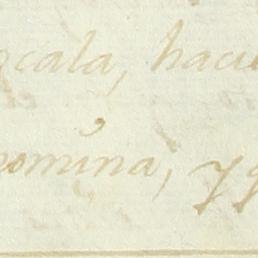 cala, haci
nomina, y